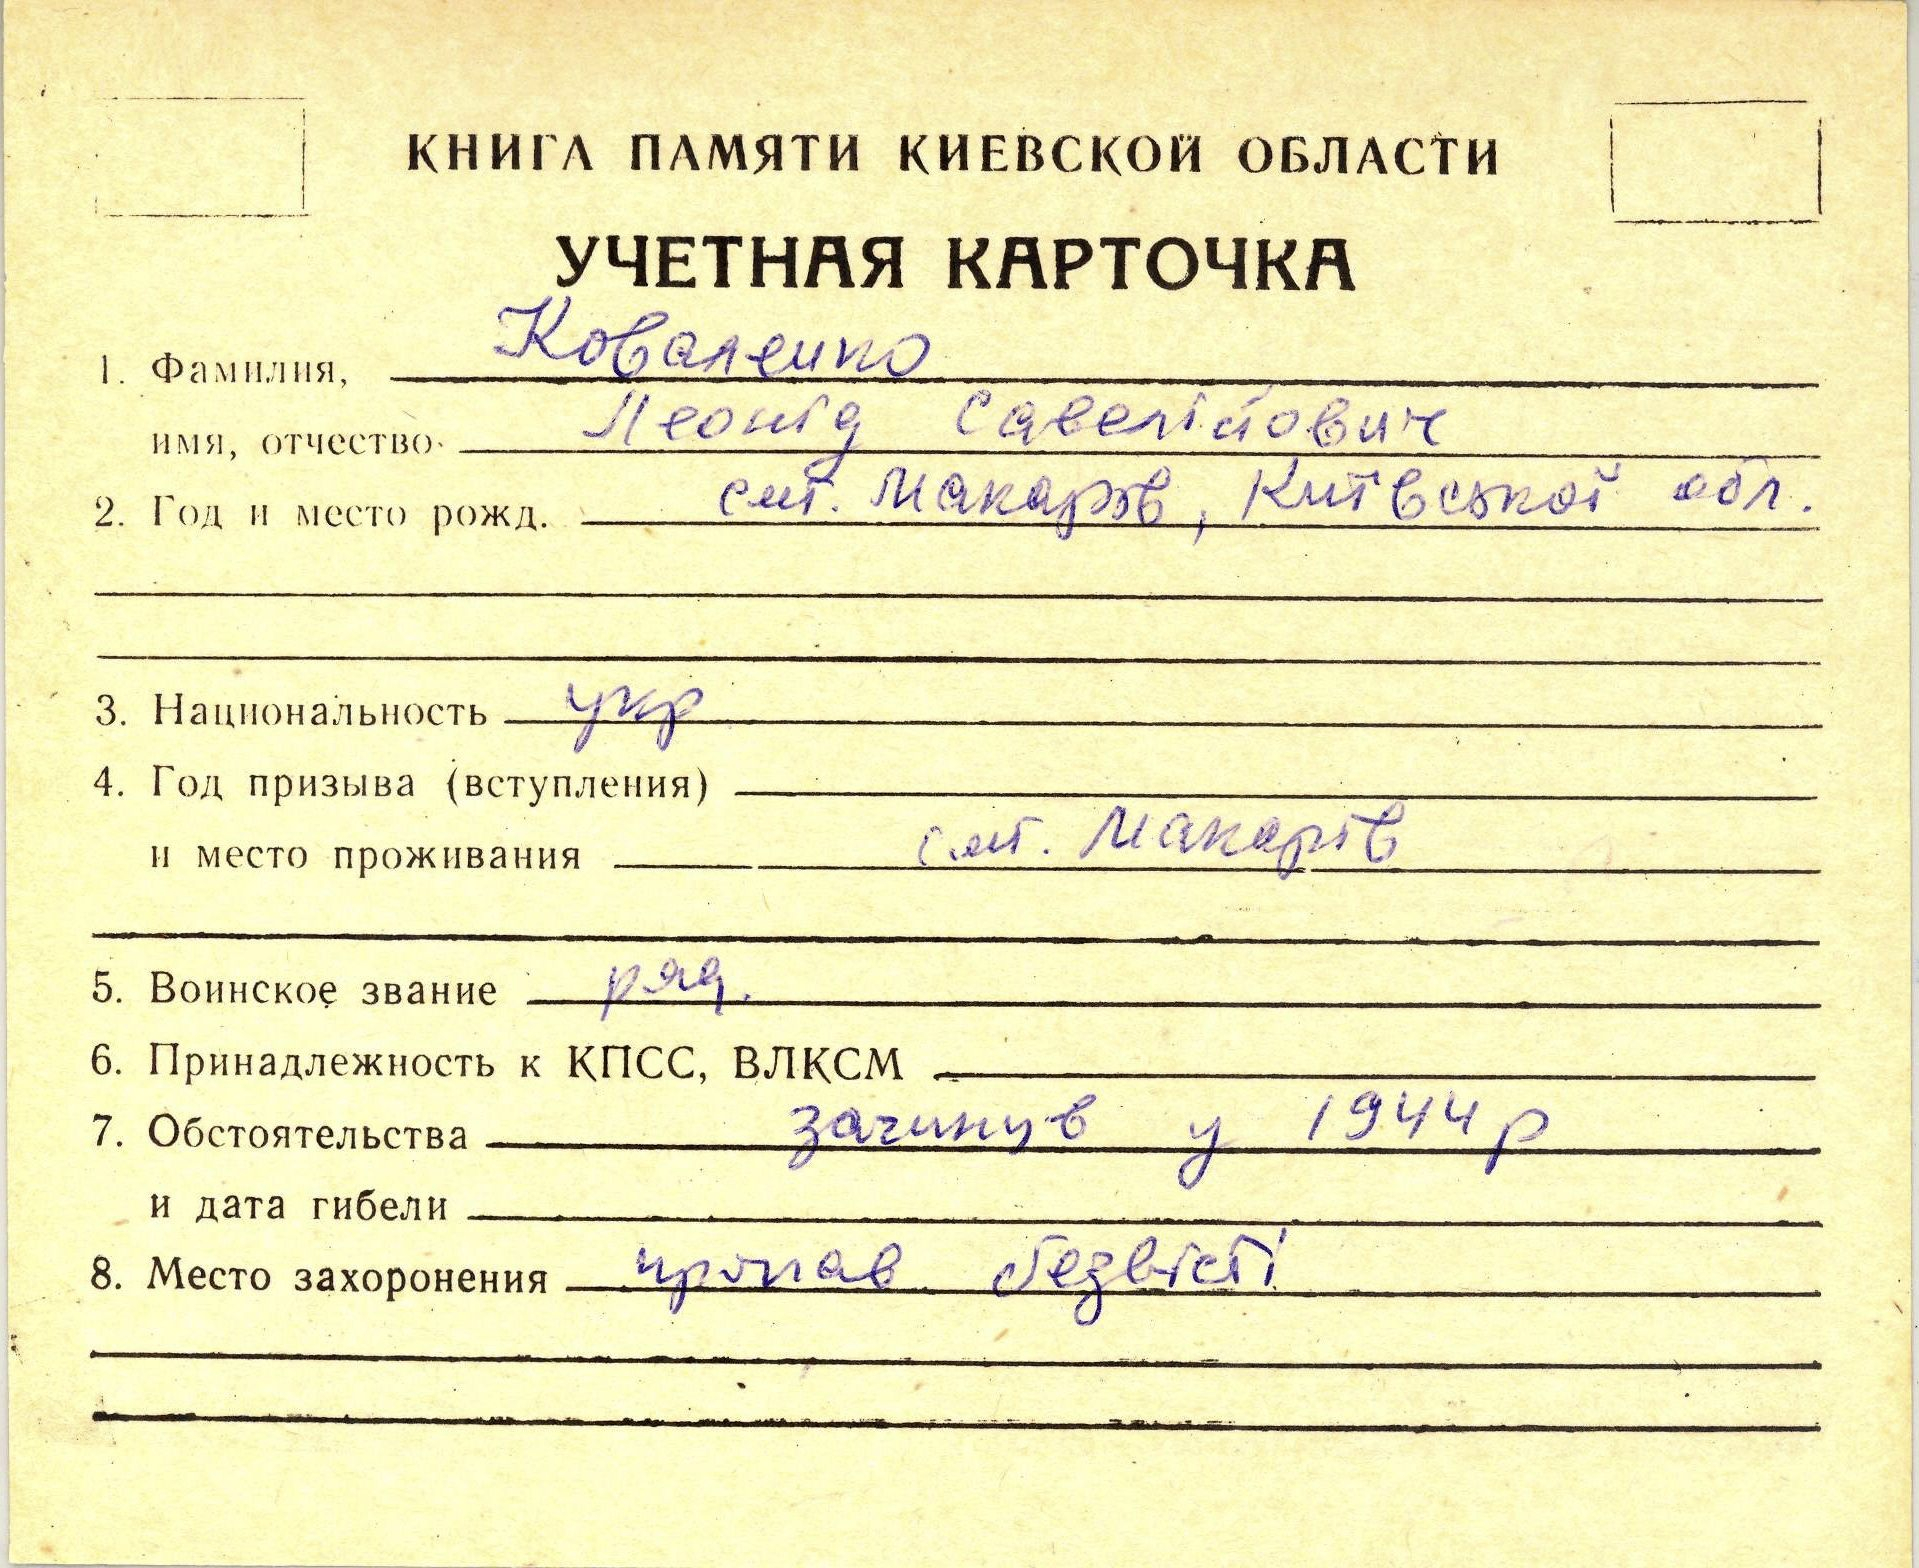 КНИГА ПАМЯТИ КИЕВСКОЙ ОБЛАСТИ
УЧЕТНАЯ КАРТОЧКА
1. Фамилия, Коваленко
имя, отчество Леонід Савелійович
2. Год и место рожд. смт. Макарів, Київської обл.
3. Национальность укр
4. Год призыва (вступления)
и место проживания смт. Макарів
5. Воинское звание ряд.
6. Принадлежность к КПСС, ВЛКСМ
7. Обстоятельства загинув у 1944 р
и дата гибели
8. Место захоронения пропав безвісті